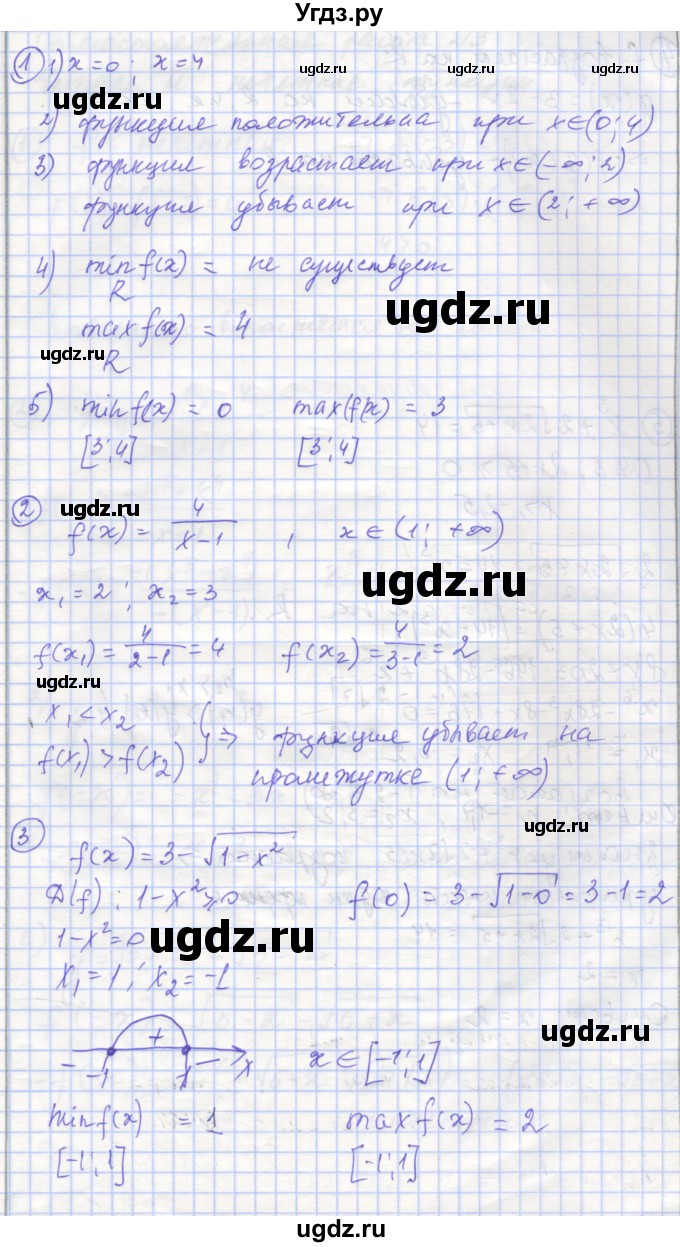 Угдз.ру
① 1) x=0; x=4
2) функция положительна при x∈(0;4)
3) функция возрастает при x∈(-∞;2)
функция убывает при x∈(2;+∞)
4) min f(x) = не существует
R
ugdz.ru
max f(x) = 4
ugdz.ru
R
5) min f(x) = 0 max(f(x) = 3
[3;4] [3;4]
ugdz.ru
② f(x) = 4/(x-1), x∈(1;+∞)
ugdz.ru
x₁=2; x₂=3
f(x₁)=4/(2-1)=4 f(x₂)=4/(3-1)=2
ugdz.ru
x₁<x₂
f(x₁)>f(x₂) } ⇒ функция убывает на
промежутке (1;+∞)
ugdz.ru
③ f(x)=3-√(1-x²)
D(f): 1-x²≥0 f(0)=3-√(1-0)=3-1=2
1-x²=0
ugdz.ru
x₁=1; x₂=-1
ugdz.ru
− + −
-1 1 x x∈[-1;1]
min f(x) = 1 max f(x) = 2
[-1;1] [-1;1]
ugdz.ru
ugdz.ru